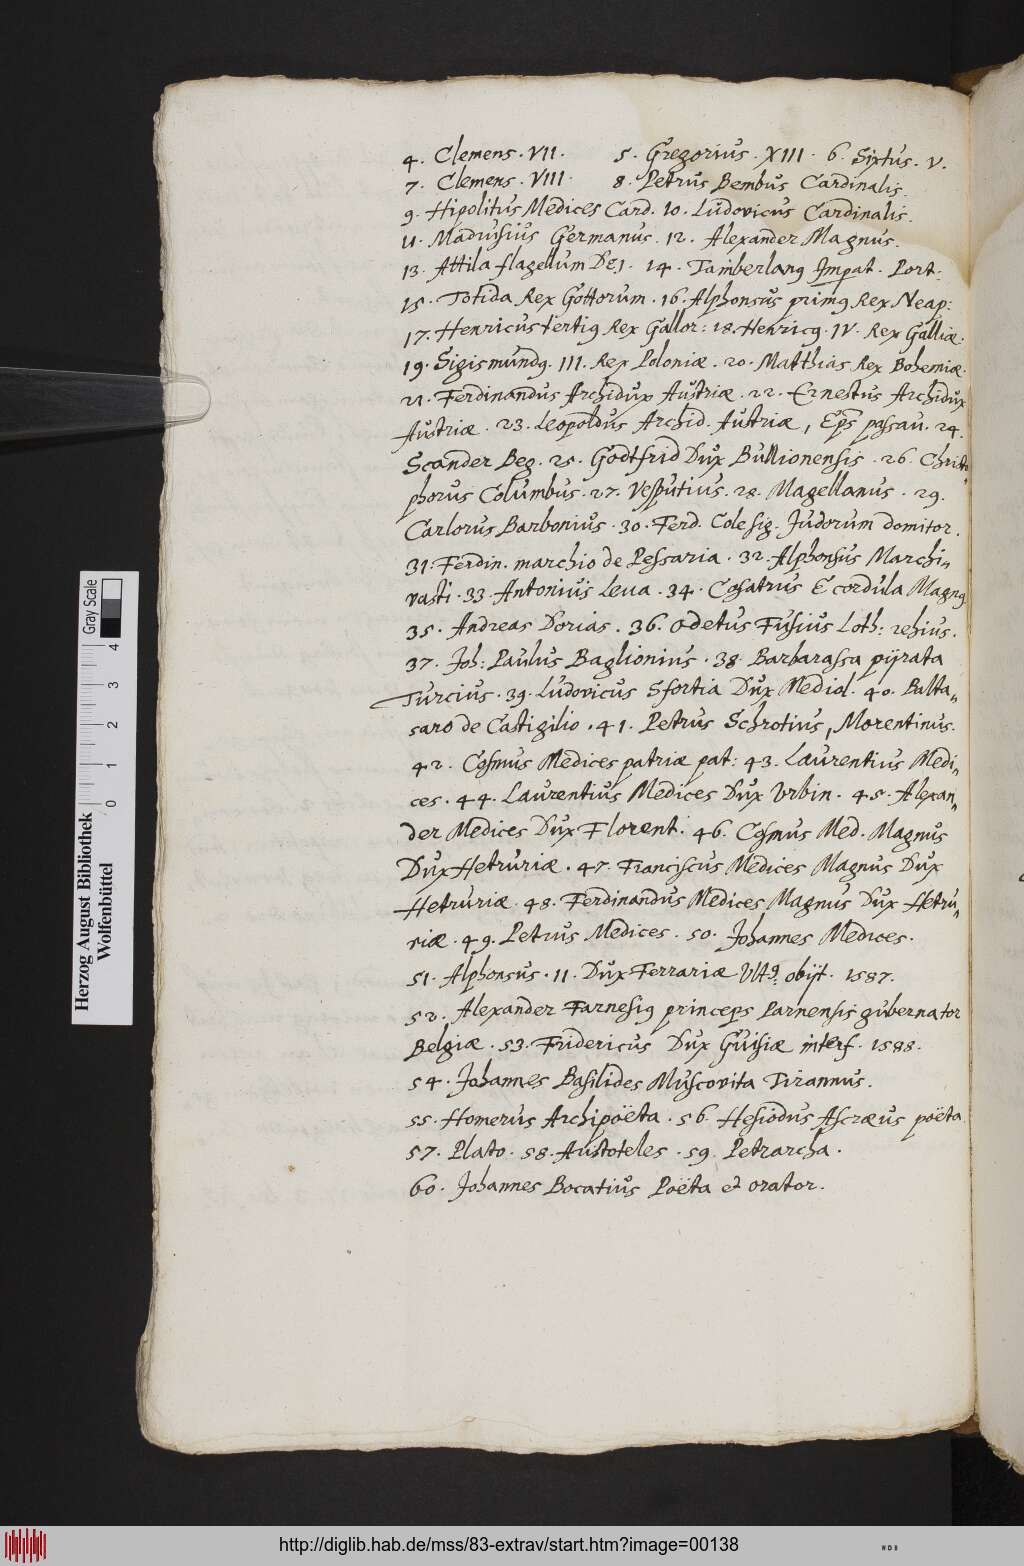 4. Clemens. VII. 5. Gregorius. XIII. 6. Sixtus. V.
7. Clemens. VIII. 8. Petrus Bembus Cardinalis.
9. Hipolitus Medices Card. 10. Ludovicus Cardinalis.
11. Madrusius Germanus. 12. Alexander Magnus.
13. Attila flagellum DEJ. 14. Tamberlang Impat. Port.
15. Totida Rex Gottorum. 16. Alphonsus primg Rex Neap:
17. Henricus tertig Rex Gallor: 18. Henricg. IV. Rex Galliæ.
19. Sigismundg. III. Rex Poloniæ. 20. Matthias Rex Bohemiæ.
21. Ferdinandus Archidux Austriæ. 22. Ernestus Archidux
Austriæ. 23. Leopoldus Archid. Austriæ, Eps passau. 24.
Scander Beg. 25. Godtfrid Dux Bullionensis. 26. Christo,,
phorus Columbus. 27. Vesputius. 28. Magellanus. 29.
Carlorus Barbonius. 30. Ferd. Colesig. Judorum domitor.
31: Ferdin. marchio de Pescaria. 32. Alphonsus Marchi,,
vasti. 33. Antonius Leua. 34. Cosatrus Ecordula Magng
35. Andreas Dorias. 36. Odetus Fusius Loth: rehius.
37. Joh: Paulus Baglionius. 38. Barbarassa pÿrata
Turcius. 39. Ludovicus Sfortia Dux Mediol. 40. Balta,,
saro de Castigilio. 41. Petrus Schrotius, Morentinus.
42. Cosmus Medices patriæ pat: 43. Laurentius Medi,,
ces. 44. Laurentius Medices Dux Urbin. 45. Alexan,,
der Medices Dux Florent. 46. Cosmus Med. Magnus
Dux Hetruriæ. 47. Franciscus Medices Magnus Dux
Hetruriæ. 48. Ferdinandus Medices Magnus Dux Hetru,,
riæ. 49. Petrus Medices. 50. Johannes Medices.
51. Alphonsus. II. Dux Ferrariæ Ult9. obijt. 1587.
52. Alexander Farnesig princeps Parnensis gubernator
Belgiæ. 53. Fridericus Dux Guisiæ interf. 1588.
54. Johannes Basilides Muscovita Tirannus.
55. Homerus Archipoëta. 56. Hesiodus Ascræus poëta
57. Plato. 58. Aristoteles. 59. Petrarcha.
60. Johannes Bocatius Poëta et orator.
Herzog August Bibliothek
Wolfenbüttel
Gray Scale
0 1 2 3 4
http://diglib.hab.de/mss/83-extrav/start.htm?image=00138